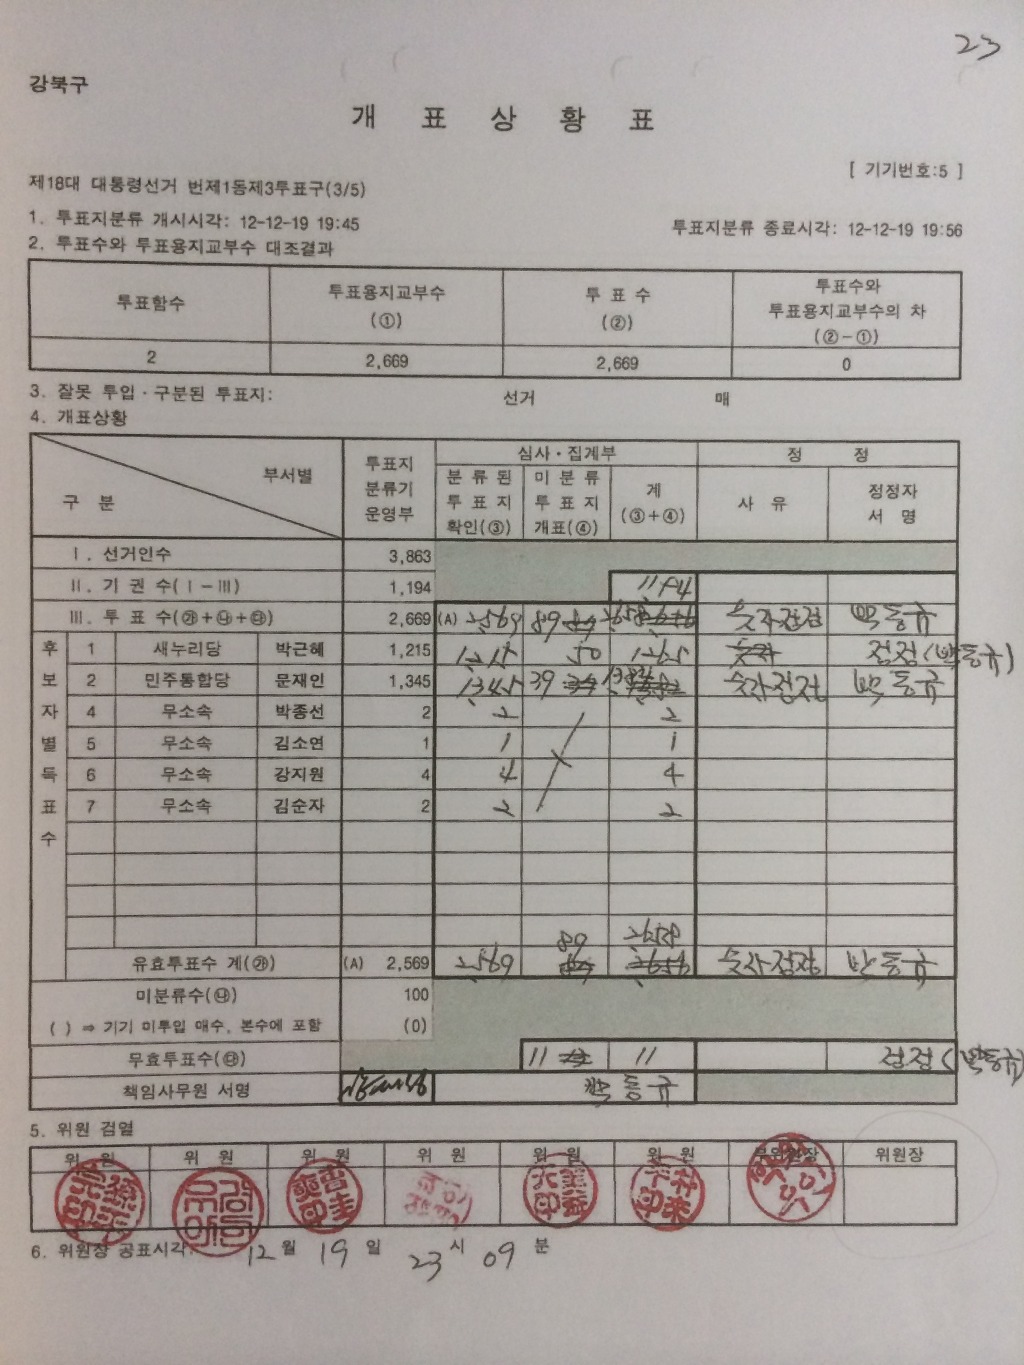 23
강북구
개 표 상 황 표
[ 기기번호:5 ]
제18대 대통령선거 번제1동제3투표구(3/5)
1. 투표지분류 개시시각: 12-12-19 19:45 투표지분류 종료시각: 12-12-19 19:56
2. 투표수와 투표용지교부수 대조결과
투표함수 투표용지교부수 (①) 투 표 수 (②) 투표수와 투표용지교부수의 차 (②-①)
2 2,669 2,669 0
3. 잘못 투입·구분된 투표지: 선거 매
4. 개표상황
구 분 부서별 투표지 분류기 운영부 심사·집계부 정 정
분 류 된 투 표 지 확인(③) 미 분 류 투 표 지 개표(④) 계 (③+④) 사 유 정정자 서 명
Ⅰ. 선거인수 3,863
Ⅱ. 기 권 수(Ⅰ-Ⅲ) 1,194 1194
Ⅲ. 투 표 수(㉮+㉯+㉰) 2,669 (A) 2,569 89 2658 숫자정정 박동규
후보자별득표수
1 새누리당 박근혜 1,215 1,215 50 1265 숫자 정정(박동규)
2 민주통합당 문재인 1,345 1345 39 1384 숫자정정 박동규
4 무소속 박종선 2 2 2
5 무소속 김소연 1 1 1
6 무소속 강지원 4 4 4
7 무소속 김순자 2 2 2
유효투표수 계(㉮) (A) 2,569 2,569 89 2658 숫자정정 박동규
미분류수(㉯) 100
( ) ⇒ 기기 미투입 매수, 본수에 포함 (0)
무효투표수(㉰) 11 11 정정(박동규)
책임사무원 서명 박동규
5. 위원 검열
위 원 위 원 위 원 위 원 위 원 위 원 부위원장 위원장
6. 위원장 공표시각: 12 월 19 일 23 시 09 분